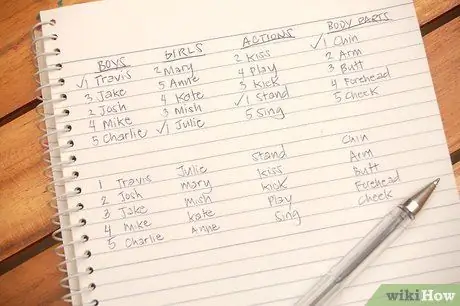 BOYS GIRLS ACTIONS BODY PARTS
✓1 Travis 2 Mary 2 Kiss ✓1 Chin
3 Jake 5 Anne 4 Play 2 Arm
2 Josh 4 Kate 3 Kick 3 Butt
4 Mike 3 Mish ✓1 Stand 4 Forehead
5 Charlie ✓1 Julie 5 Sing 5 Cheek
1 Travis Julie Stand Chin
2 Josh Mary Kiss Arm
3 Jake Mish Kick Butt
4 Mike Kate Play Forehead
5 Charlie Anne Sing Cheek
wikiHow